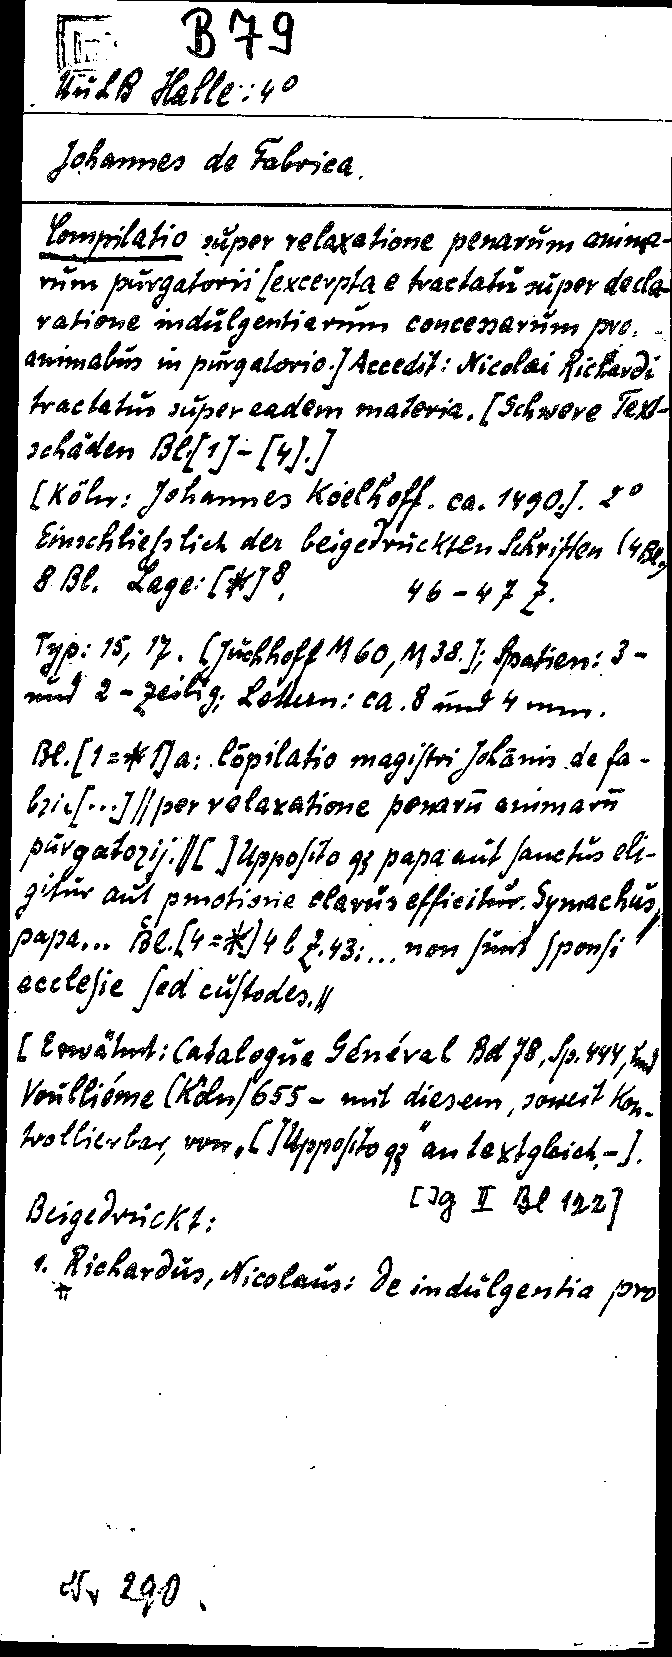 B 79
UuLB Halle: 4°
Johannes de Fabrica.
Compilatio super relaxatione penarum anima-
rum purgatorii [excerpta e tractatu super decla-
ratione indulgentiarum concessarum pro
animabus in purgatorio.] Accedit: Nicolai Richardi
tractatus super eadem materia. [Schwere Text-
schäden Bl.[1]-[4].]
[Köln: Johannes Koelhoff. ca. 1490.]. 2°
Einschließlich der beigedruckten Schriften (4 Bl.)
8 Bl. Lage: [*]8. 46-47 Z.
Typ: 15, 17. [Juchhoff M 60, M 38.]; Spatien: 3-
und 2-zeilig; Lettern: ca. 8 und 4 mm.
Bl. [1=*1]a: Cōpilatio magistri Johānis de fa-
bric[...]//per relaxatione penarū animarū
purgatorij.//[ ]Upposito qz papa aut sanctus eli-
gitur aut pmotione clarus efficitur. Symachus,
papa... Bl.[4=*]4b Z.43:... non sunt sponsi
ecclesie sed custodes.//
[Erwähnt: Catalogue Général Bd 78, Sp. 444, und
Voulliéme (Köln) 655 - mit diesem, soweit kon-
trollierbar, von „[ ]Upposito qz" an textgleich,-].
[Jg II Bl 122]
Beigedruckt:
1. Richardus, Nicolaus: De indulgentia pro
Nr 290.